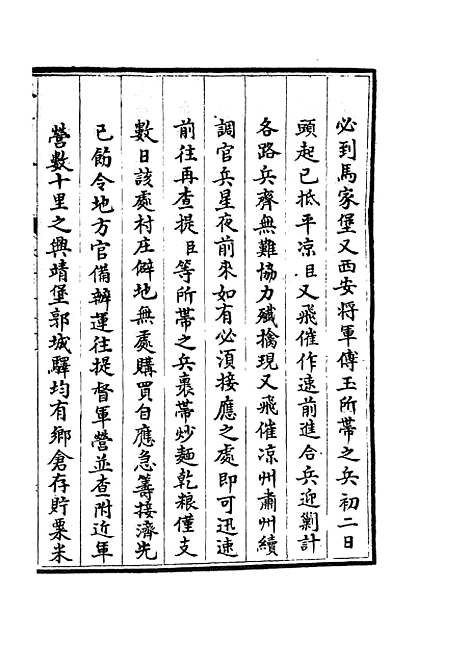 必到馬家堡又西安将軍傅玉所帶之兵初二日
頭起已抵平凉臣又飛催作速前進合兵迎剿計
各路兵齊無難協力殲擒現又飛催凉州肅州續
調官兵星夜前來如有必須接應之處即可迅速
前往再查提臣等所帶之兵裹帶炒麵乾粮僅支
數日該處村庄僻地無處購買自應急籌接濟先
已飭令地方官備辦運往提督軍營並查附近軍
營數十里之興靖堡郭城驛均有鄉倉存貯粟米